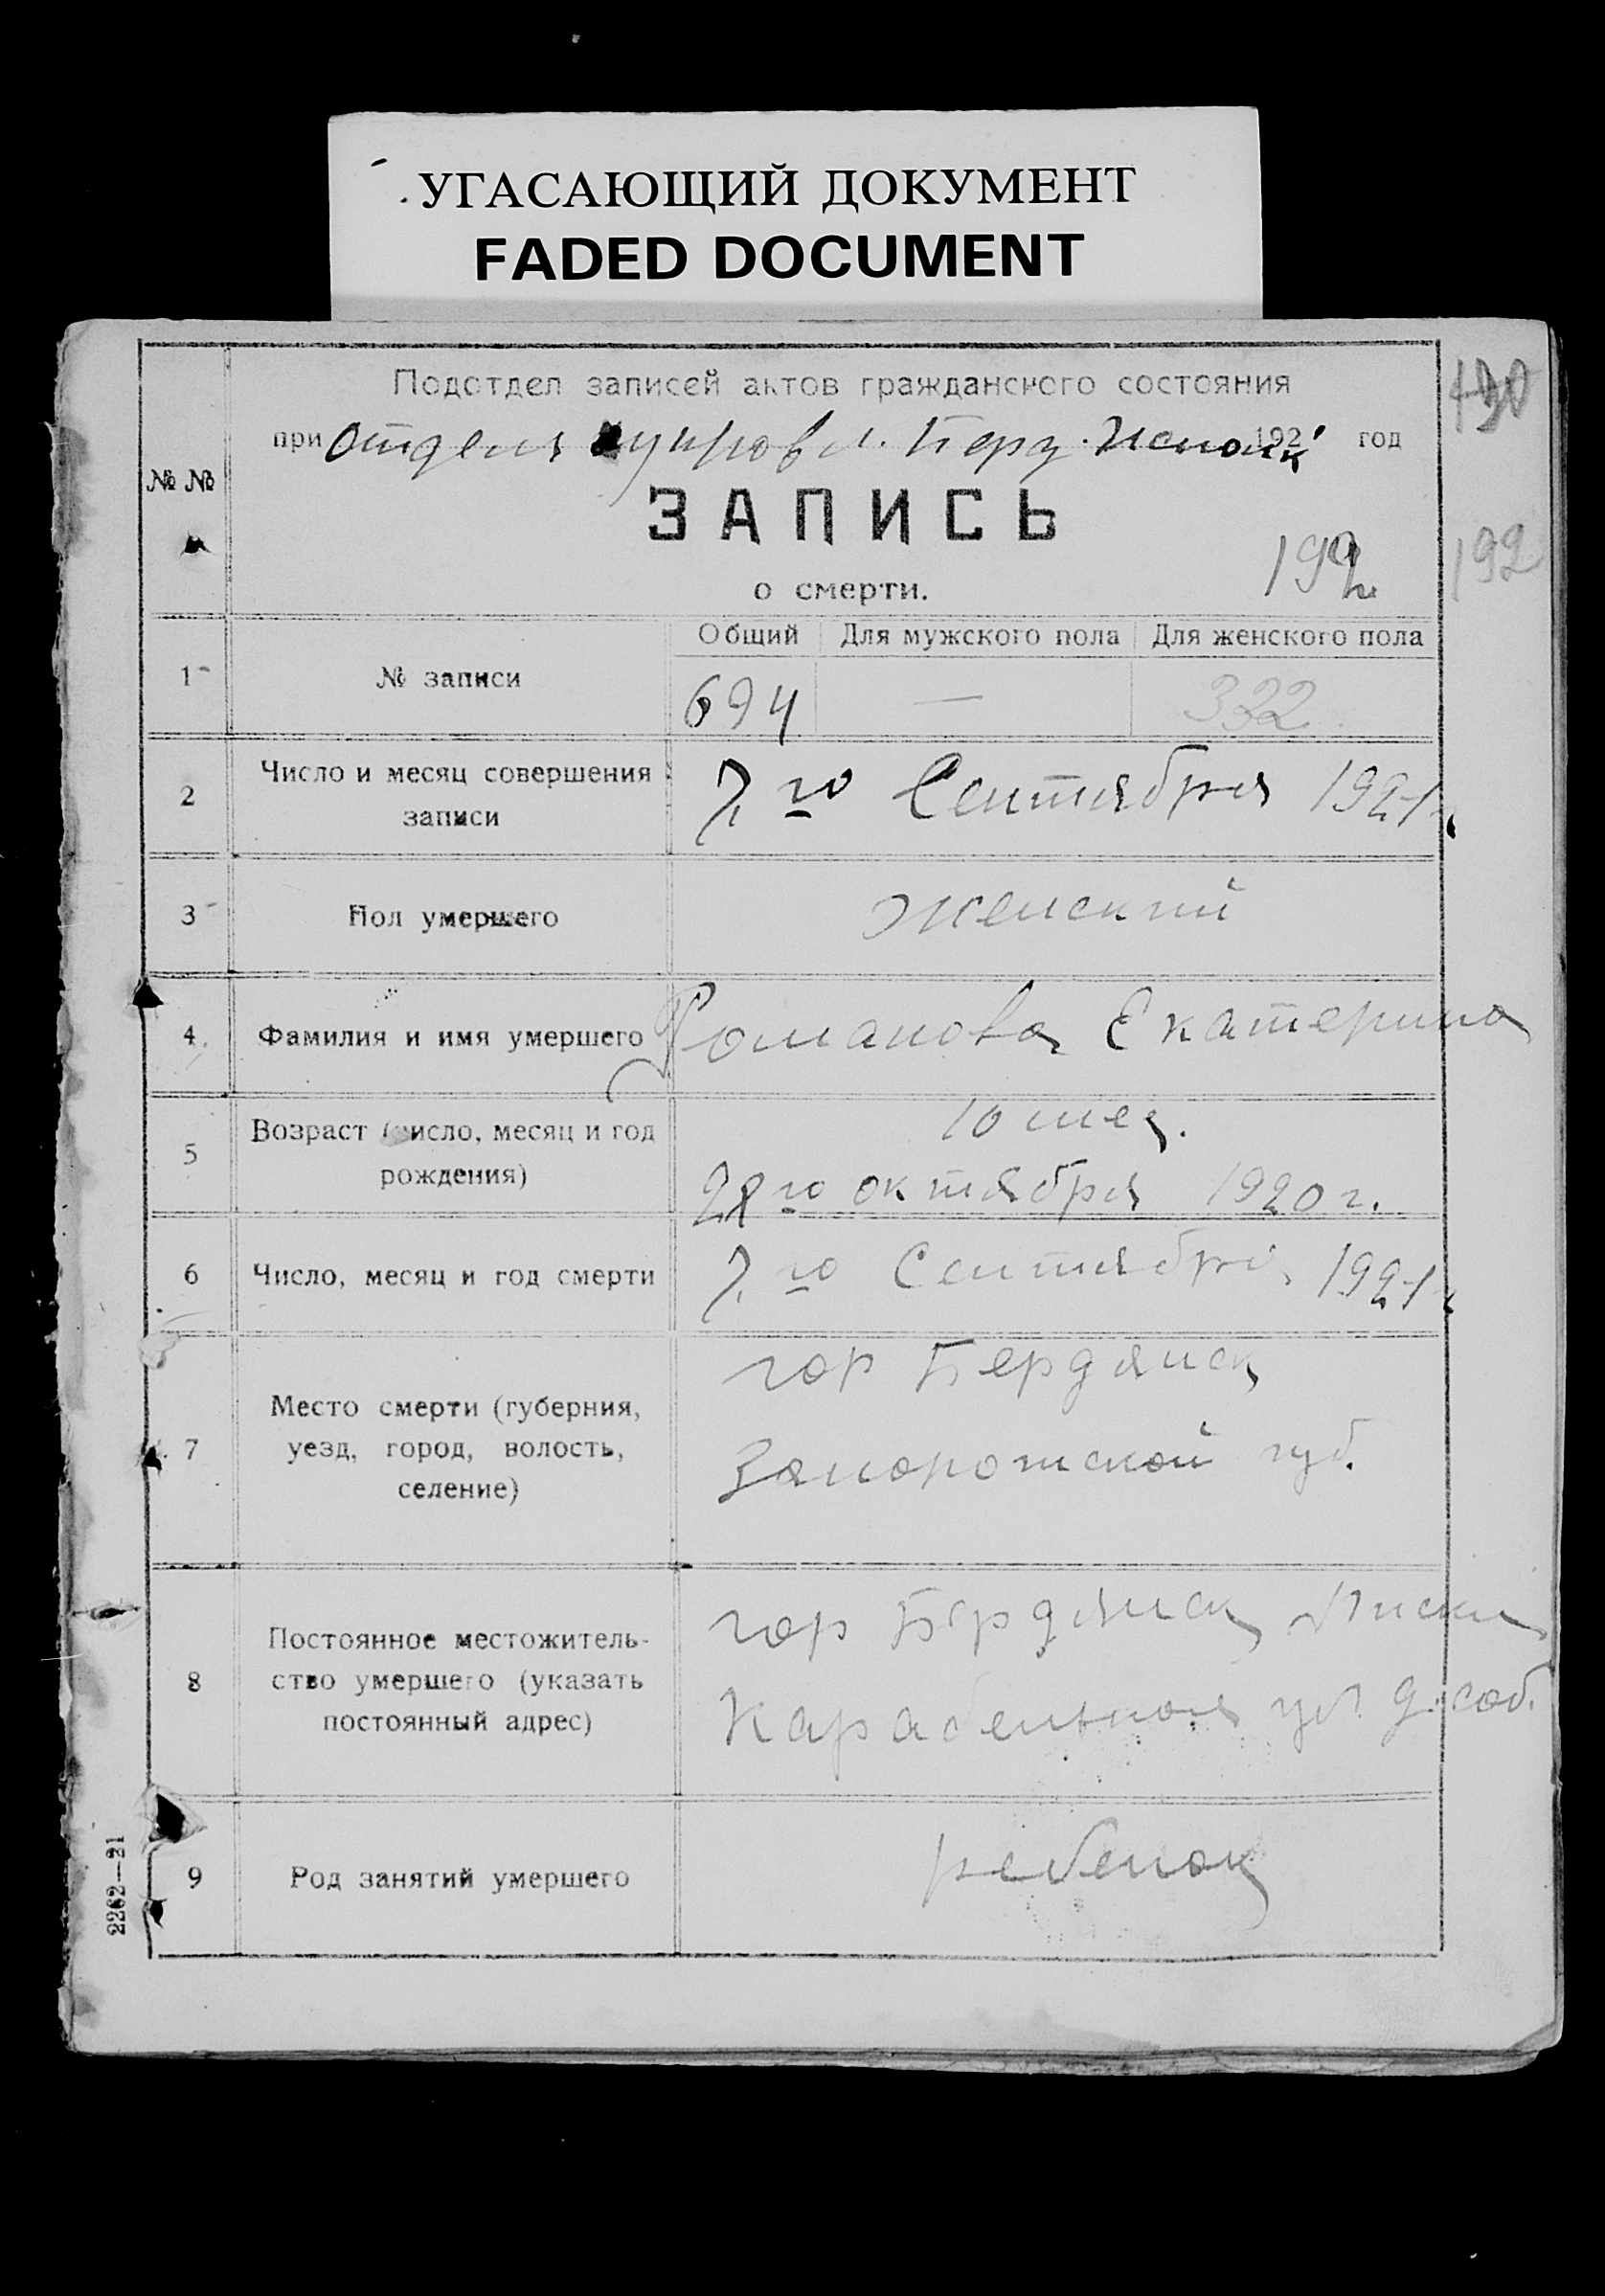 УГАСАЮЩИЙ ДОКУМЕНТ
FADED DOCUMENT
Подотдел записей актов гражданского состояния
при Отделе управл. Берд. Исполк 1921 год
№ №
ЗАПИСЬ
о смерти.
192
192
Общий Для мужского пола Для женского пола
1 № записи 694 — 332
2 Число и месяц совершения
записи
7 го Сентября 1921 г.
3 Пол умершего Женский
4 Фамилия и имя умершего Романова Екатерина
5 Возраст (число, месяц и год
рождения)
10 мес.
28 го октября 1920 г.
6 Число, месяц и год смерти 7 го Сентября 1921 г.
7 Место смерти (губерния,
уезд, город, волость,
селение)
гор Бердянск
Запорожской губ.
8 Постоянное местожитель-
ство умершего (указать
постоянный адрес)
гор Бердянск Лиски
Карабельная ул. д. соб.
9 Род занятий умершего ребенок
2262—21